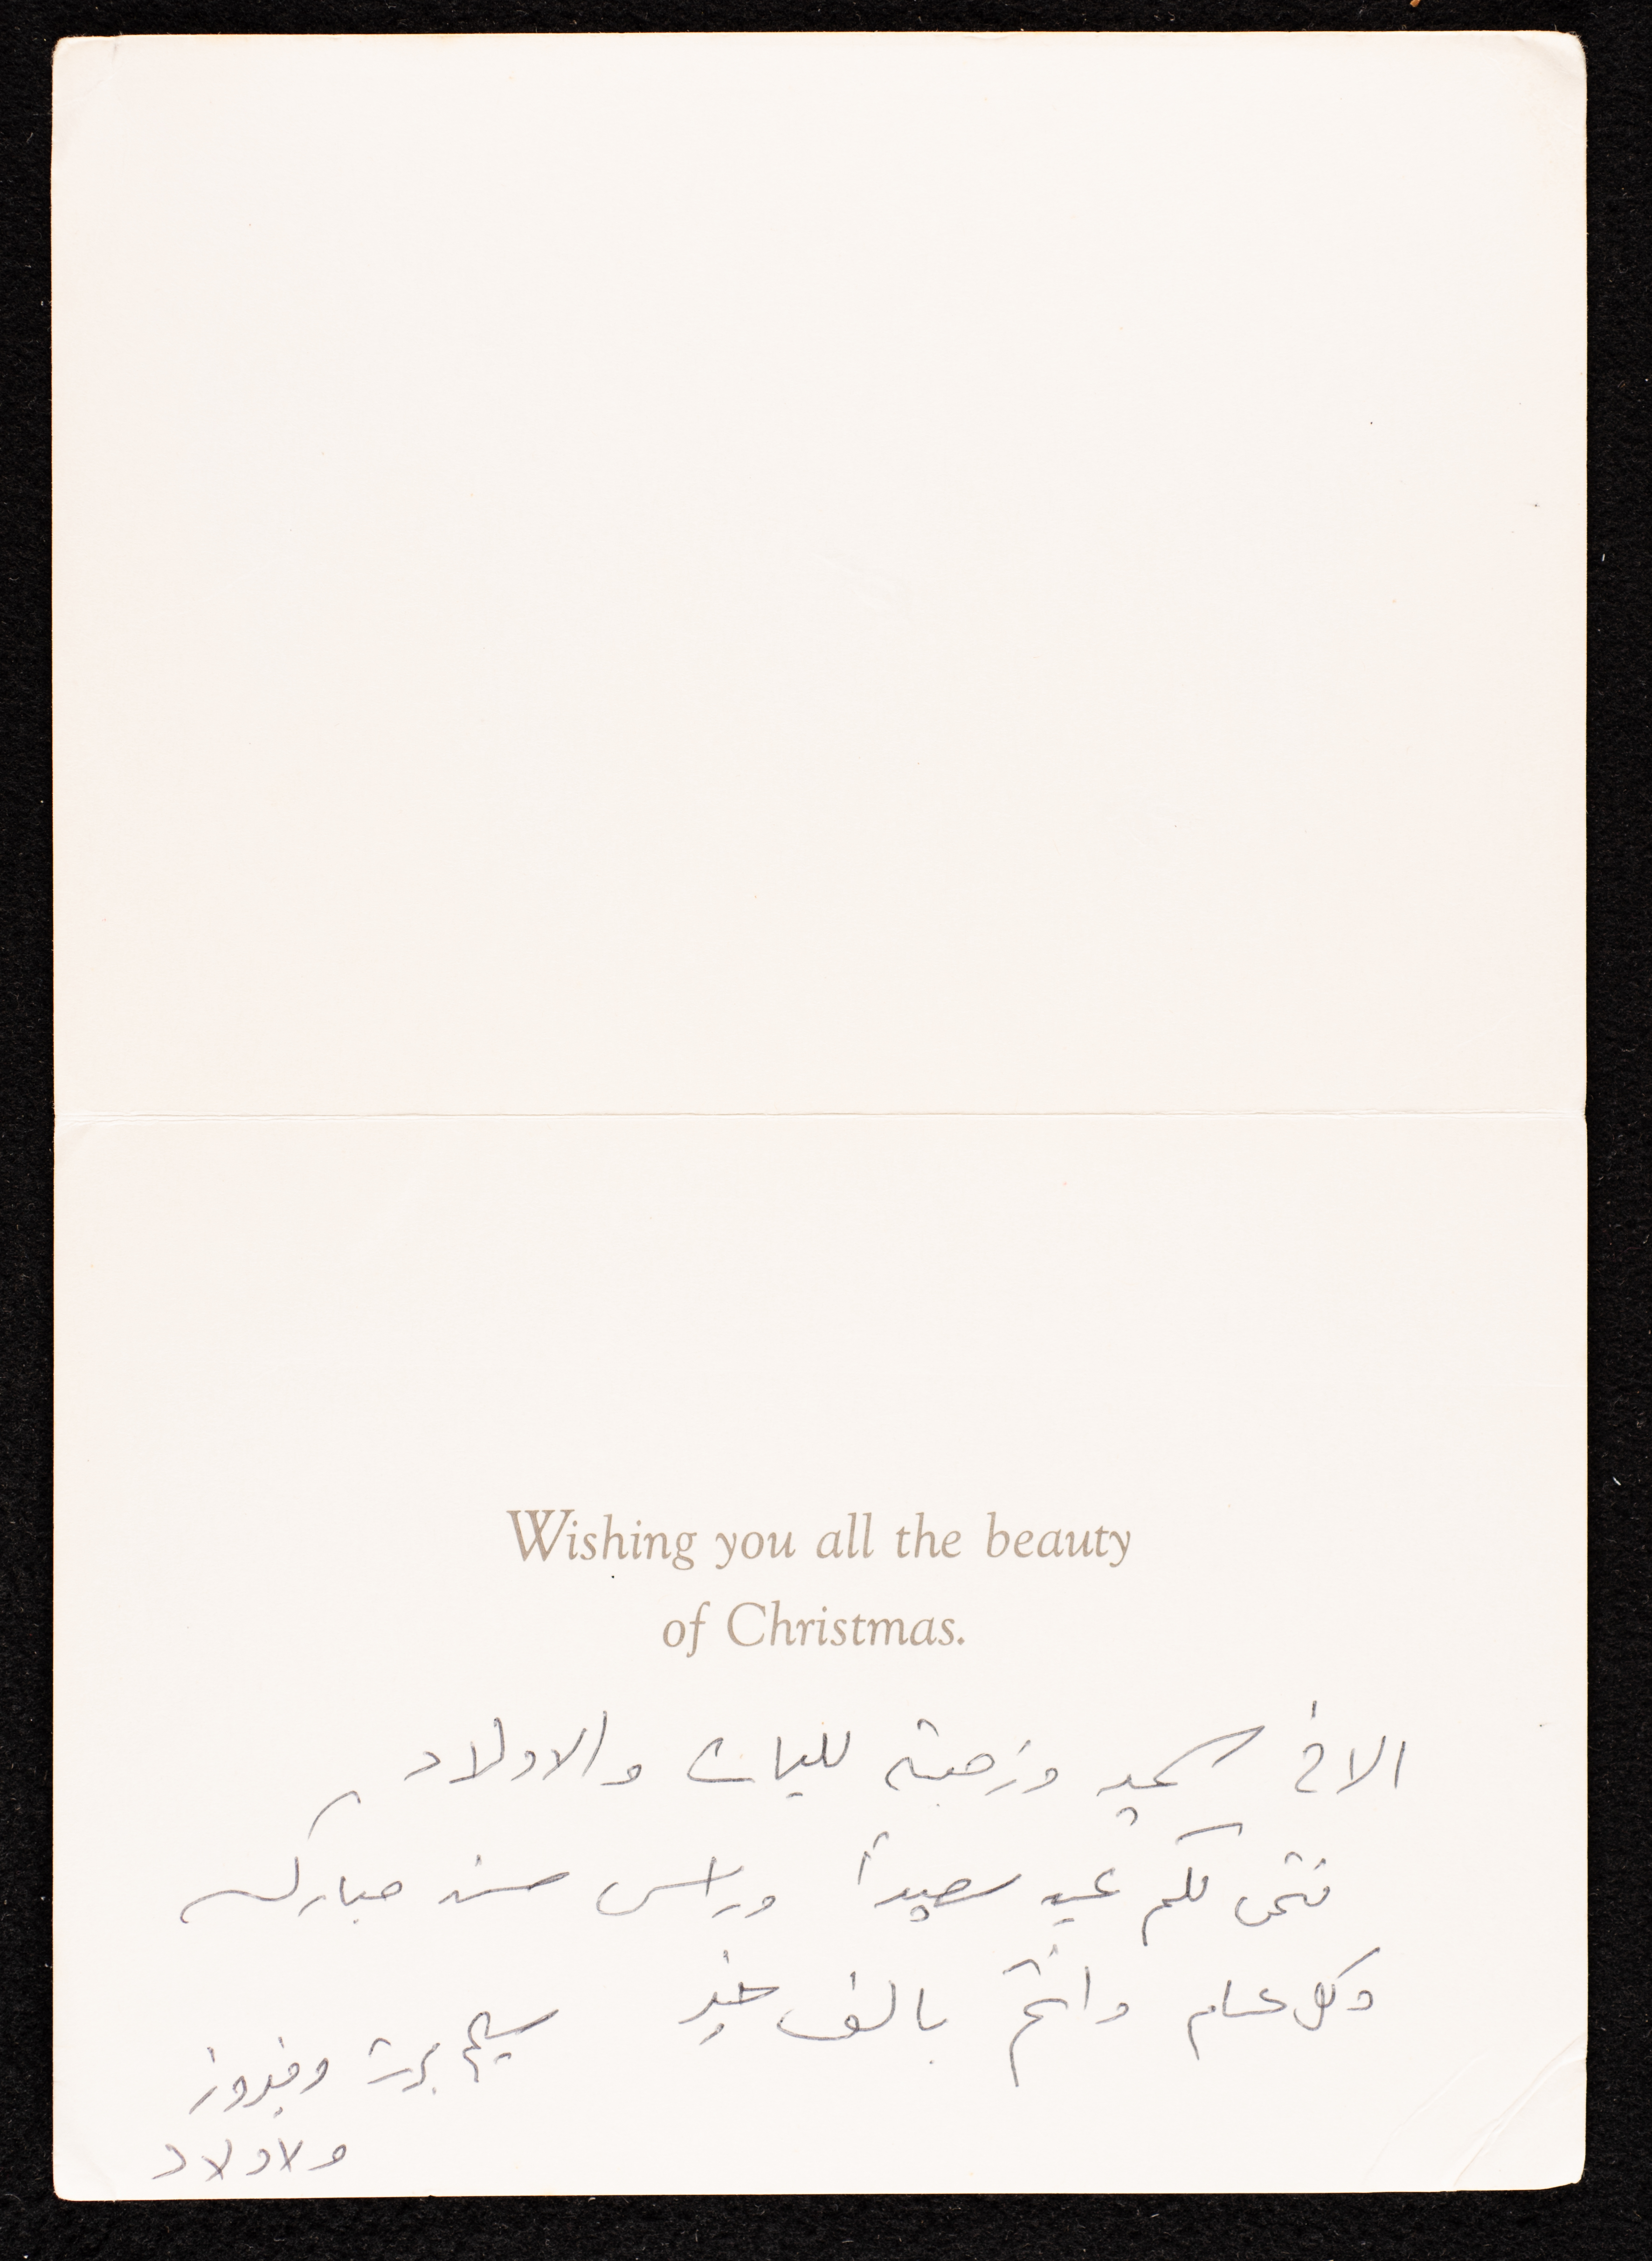 Wishing you all the beauty
of Christmas.
الاخ سعيد وزجته لليان والاولاد
نتمى لكم عيد سعيداً وراس سنه مباركه
وكل عام وانتم بالف خير
سليم وفيروز
ولاولاد